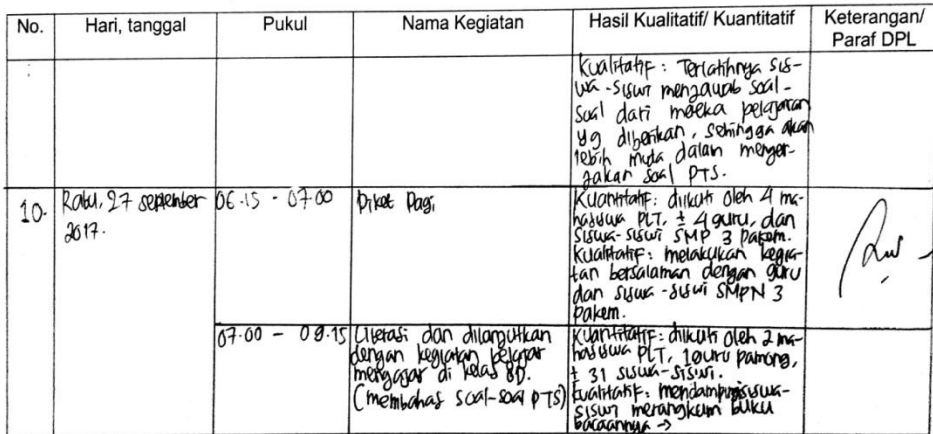 No.
Hari, tanggal
Pukul
Nama Kegiatan
Hasil Kualitatif/ Kuantitatif
Keterangan/
Paraf DPL
Kualitatif : Terlatihnya sis-
wa -siswi menjawab soal-
soal dari mereka pelajaran
yg diberikan, sehingga akan
lebih muda dalam menger-
jakan soal PTS.
10.
Rabu, 27 september
2017.
06.15 - 07.00
Piket Pagi
Kuantitatif: diikuti oleh 4 ma-
hasiswa PLT, ± 4 guru, dan
siswa-siswi SMP 3 Pakem.
Kualitatif: melakukan kegia-
tan bersalaman dengan guru
dan siswa -siswi SMPN 3
pakem.
07.00 - 09.15
Literasi dan dilanjutkan
dengan kegiatan belajar
mengajar di kelas 8D.
(membahas soal-soal PTS)
Kuantitatif: diikuti oleh 2 ma-
hasiswa PLT, 1 guru pamong,
± 31 siswa-siswi.
Kualitatif: mendampingi siswa-
siswi merangkum buku
bacaannya →